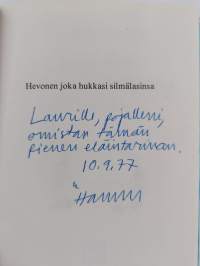 Hevonen joka hukkasi silmälasinsa
Laurille, pojalleni,
omistan tämän
pienen eläintarinan.
10.9.77
Hannu